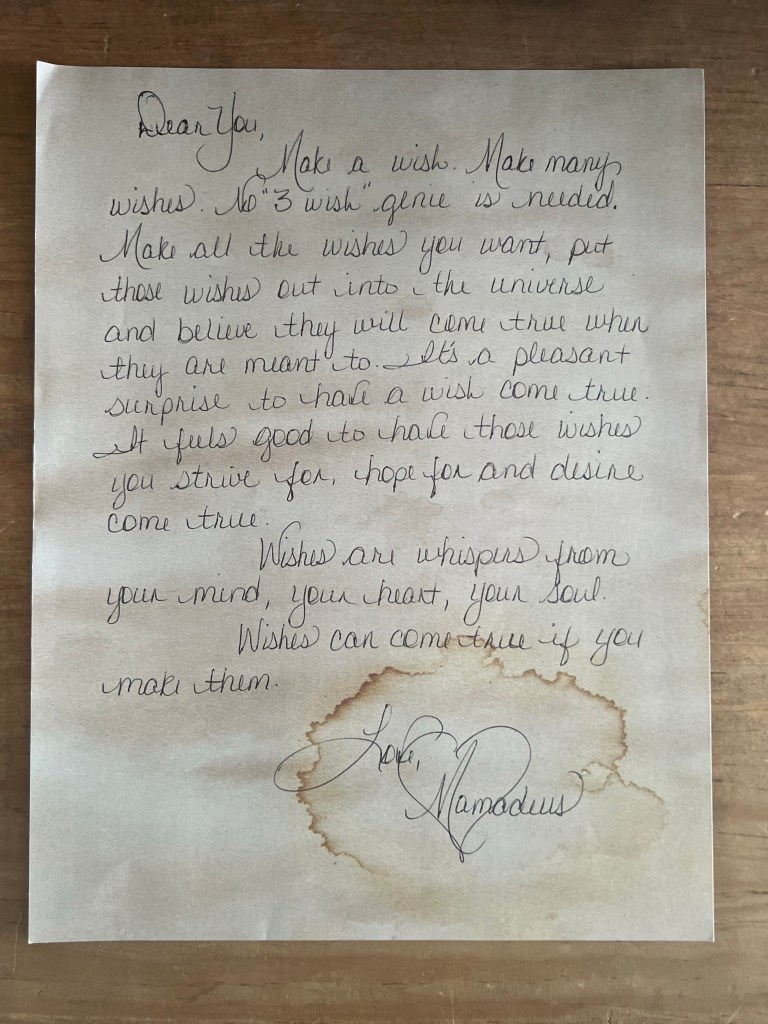 Dear You,
Make a wish. Make many
wishes. No "3 wish" genie is needed.
Make all the wishes you want, put
those wishes out into the universe
and believe they will come true when
they are meant to. It's a pleasant
surprise to have a wish come true.
It feels good to have those wishes
you strive for, hope for and desire
come true.
Wishes are whispers from
your mind, your heart, your soul.
Wishes can come true if you
make them.
Love,
Mamadeus